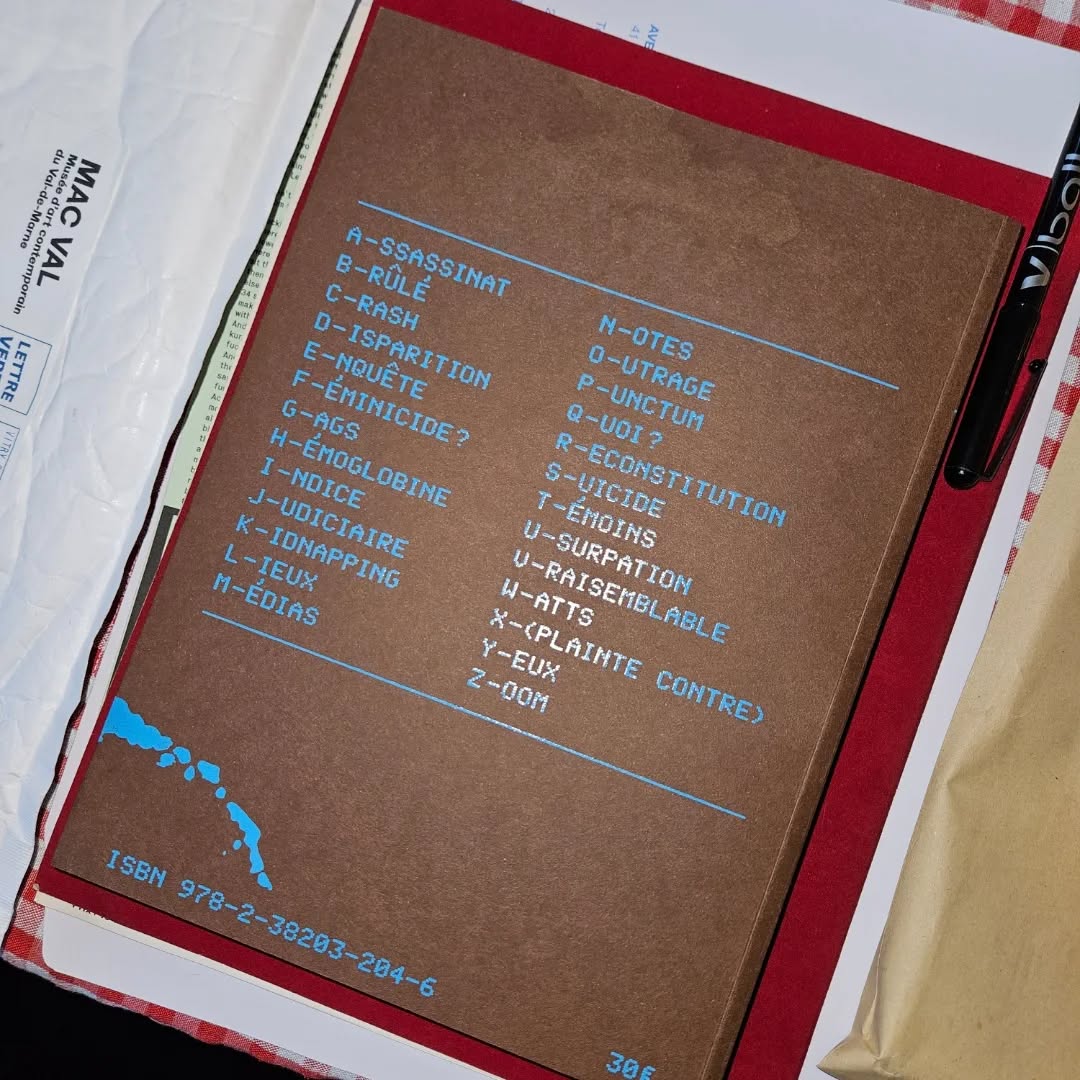 MAC VAL
Musée d'art contemporain
du Val-de-Marne
LETTRE
A-SSASSINAT
B-RÛLÉ
C-RASH
D-ISPARITION
E-NQUÊTE
F-ÉMINICIDE?
G-AGS
H-ÉMOGLOBINE
I-NDICE
J-UDICIAIRE
K-IDNAPPING
L-IEUX
M-ÉDIAS
N-OTES
O-UTRAGE
P-UNCTUM
Q-UOI?
R-ECONSTITUTION
S-UICIDE
T-ÉMOINS
U-SURPATION
V-RAISEMBLABLE
W-ATTS
X-(PLAINTE CONTRE)
Y-EUX
Z-OOM
ISBN 978-2-38203-204-6
30€